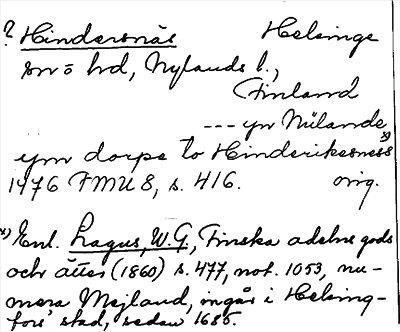 ? Hindersnäs Helsinge
sn o hd, Nylands l.,
Finland
--- yn Nülande
ym dorpe to Hinderikesness x)
1476 FMU 8, s. 416. orig.
x) Enl. Lagus, W.G., Finska adelns gods
och ätter (1860) s. 477, not. 1053, nu-
mera Mejland, ingår i Helsing-
fors stad, sedan 1685.